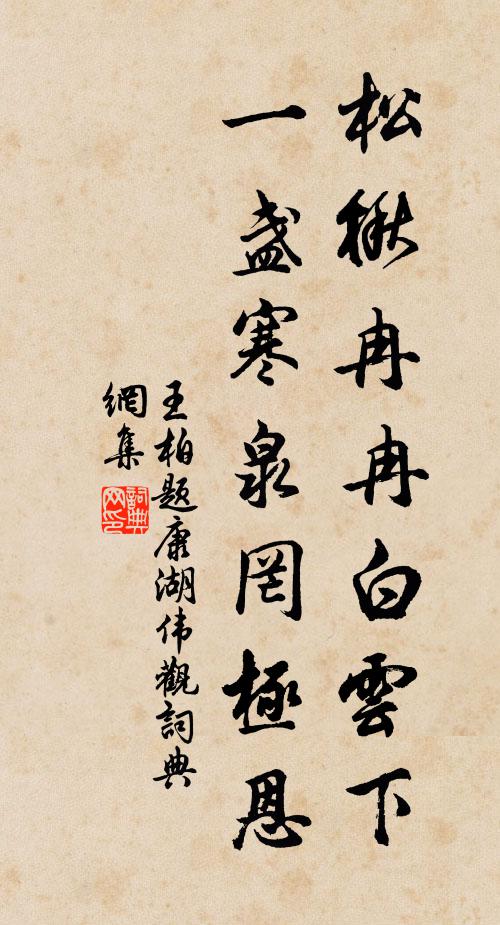 松楸冉冉白雲下
一盏寒泉罔極恩
王柏题康湖伟觀詞典
網集
詞典
网印